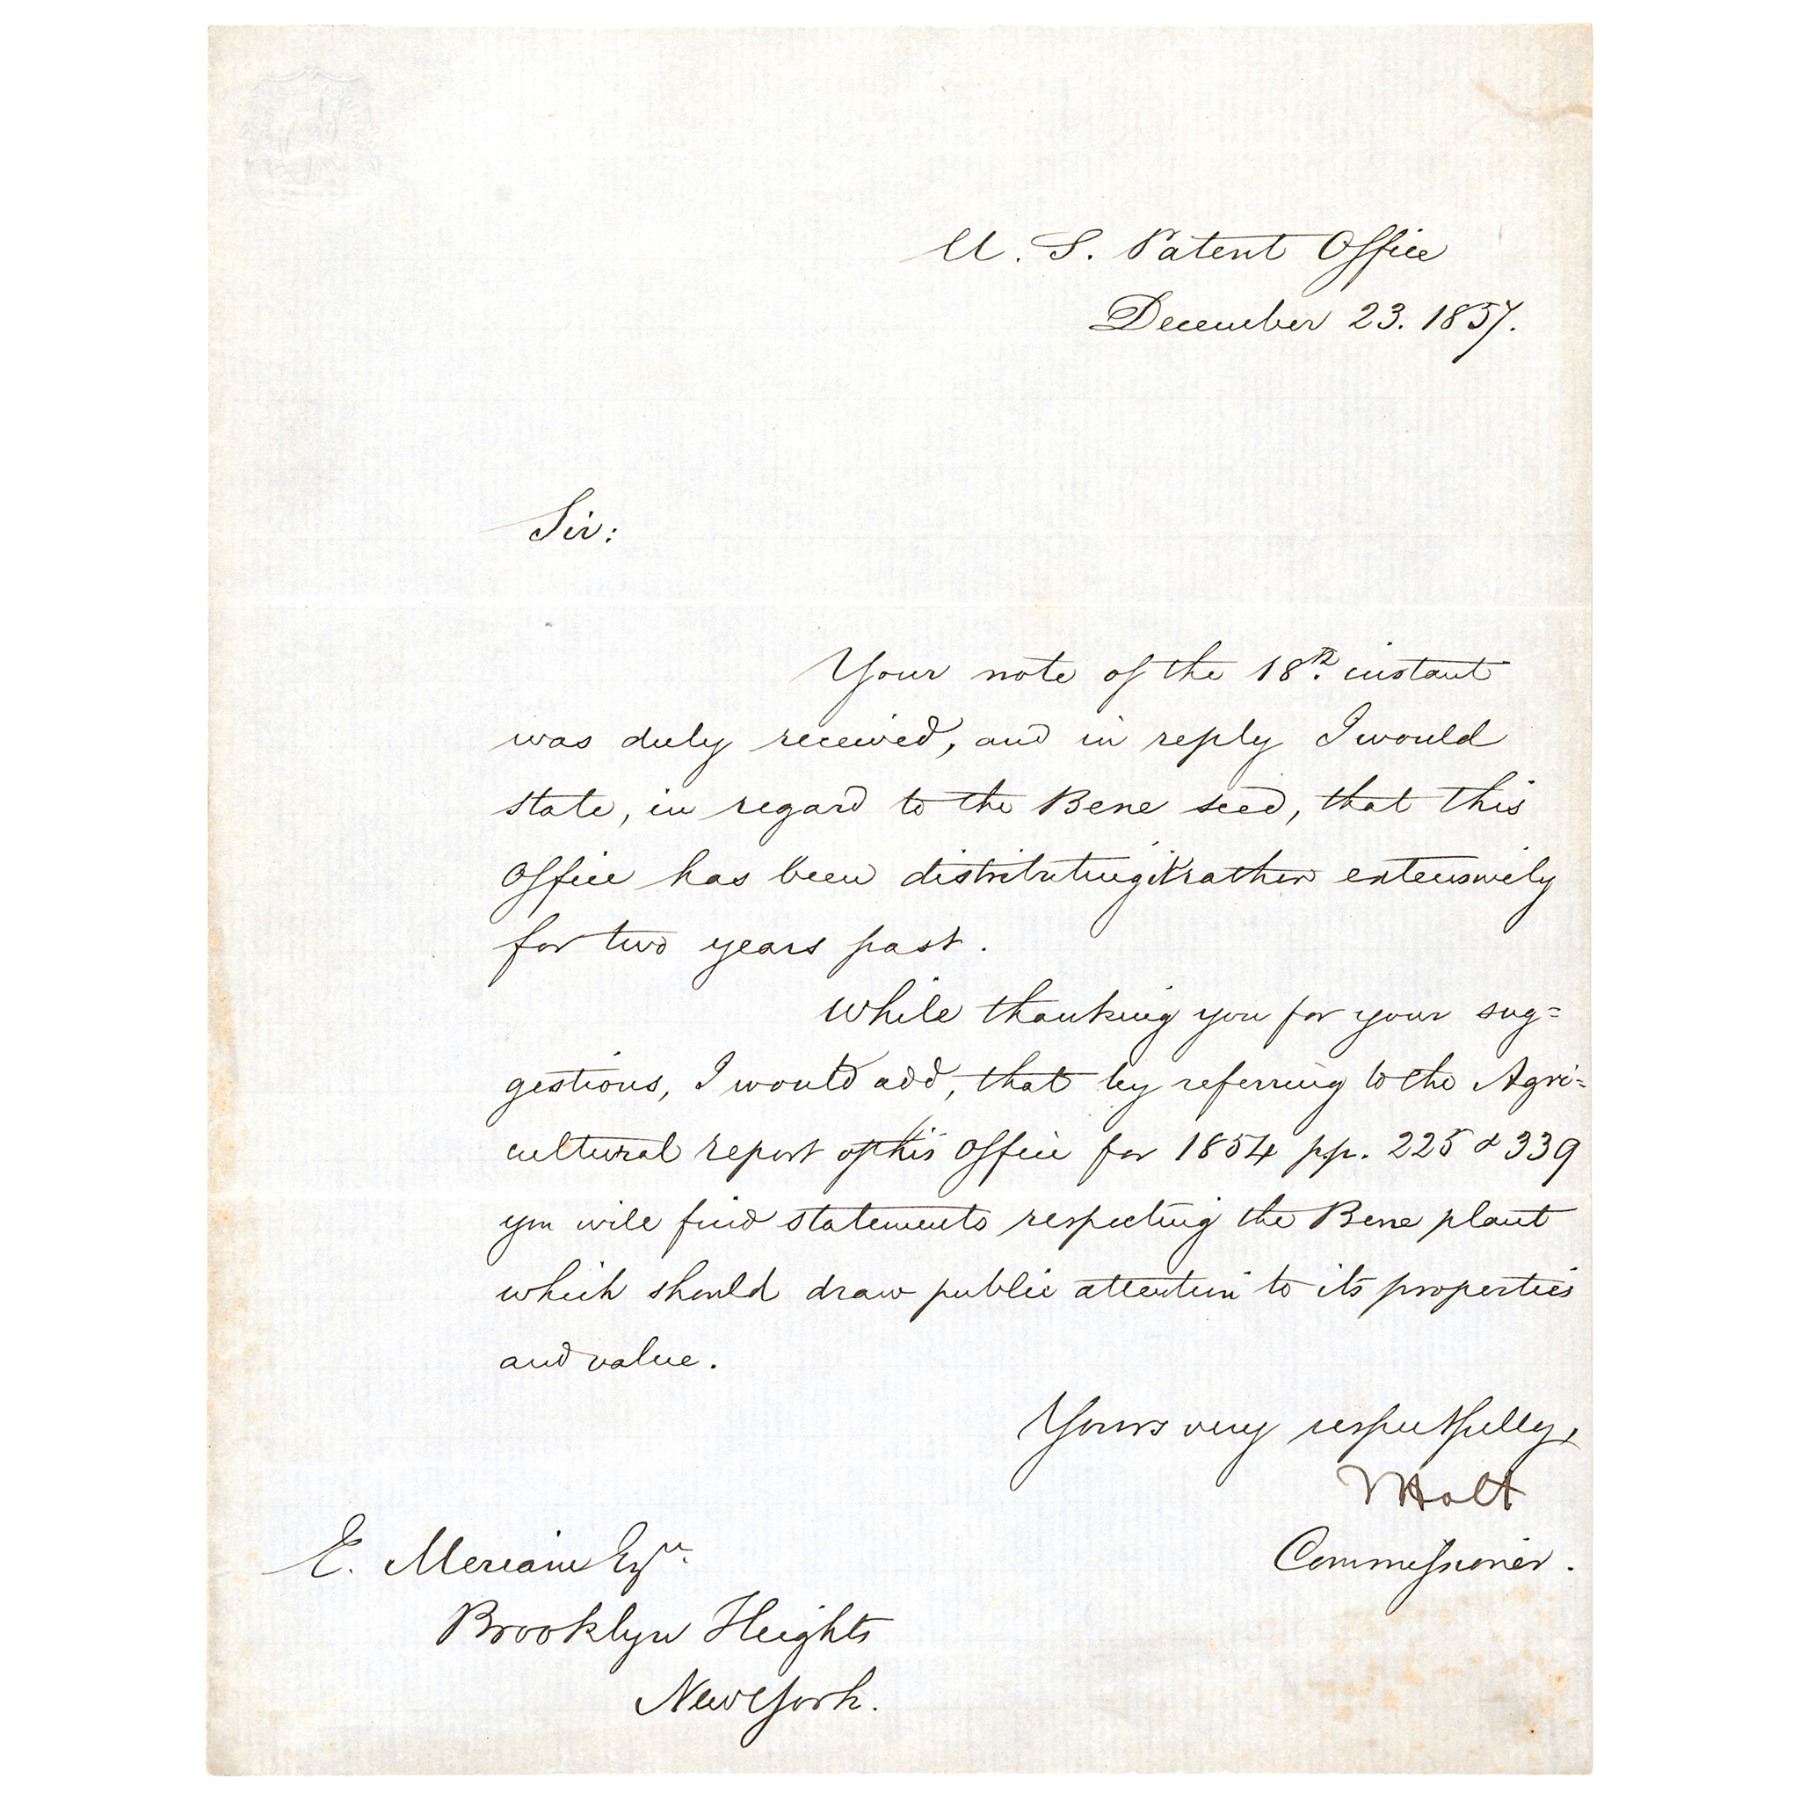 U. S. Patent Office
December 23. 1857.
Sir:
Your note of the 18th. instant
was duly received, and in reply I would
state, in regard to the Bene seed, that this
Office has been distributing it rather extensively
for two years past.
While thanking you for your sug=
gestions, I would add, that by referring to the Agri=
cultural report of this Office for 1854 pp. 225 & 339
you will find statements respecting the Bene plant
which should draw public attention to its properties
and value.
Yours very respectfully,
J Holt
Commissioner.
E. Meriam Esqr.
Brooklyn Heights
New York.